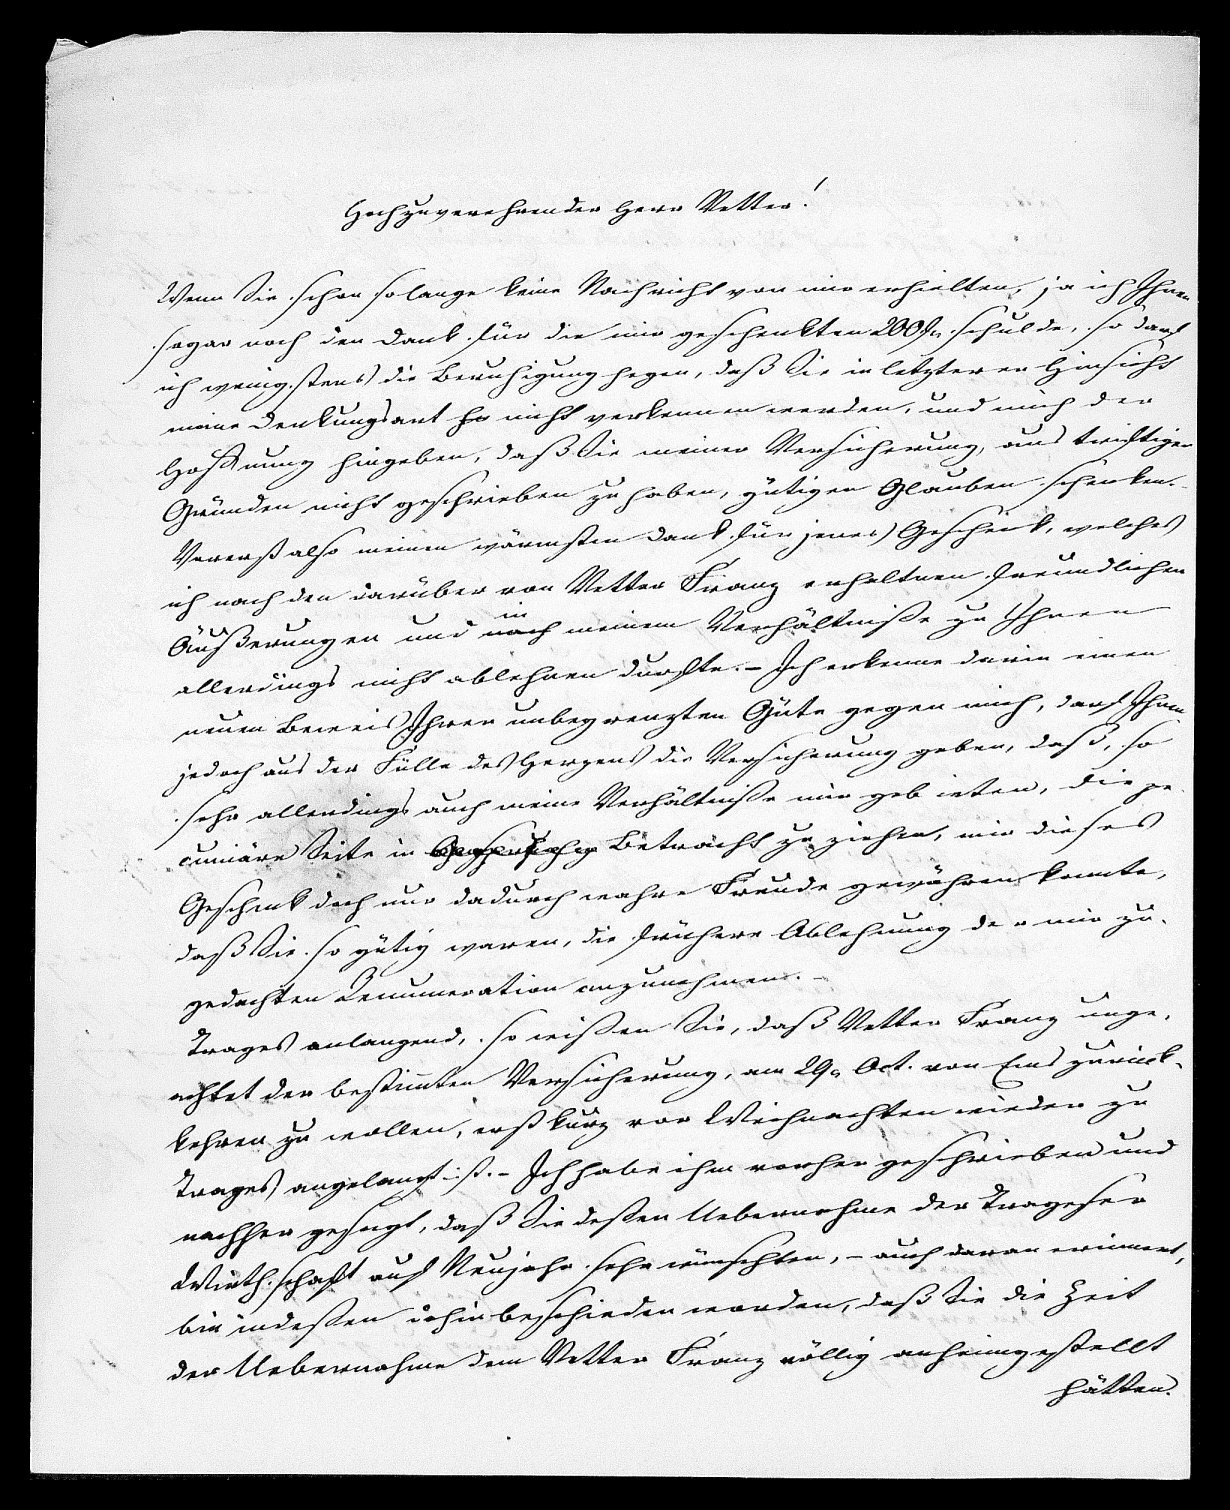 Hochzuverehrender Herr Vetter!
Wenn Sie schon solange keine Nachricht von mir erhielten, ja ich Ihnen
sogar noch den Dank für die mir geschenkten 200 schulde, so darf
ich wenigstens die Beruhigung hegen, daß Sie in letzterer Hinsicht
meine Denkungsart nicht verkennen werden, und mich der
Hoffnung hingeben, daß Sie meiner Versicherung, aus triftigen
Gründen nicht geschrieben zu haben, gütigen Glauben schenken.
Vorerst also meinen wärmsten Dank für jenes Geschenk, welches
ich nach den darüber von Vetter Franz erhaltnen freundlichen
Äußerungen und in meinem Verhältniße zu Ihnen
allerdings nicht ablehnen durfte. – Ich erkenne darin einen
neuen Beweis Ihrer unbegrenzten Güte gegen mich, darf Ihnen
jedoch aus der Fülle des Herzens die Versicherung geben, daß, so
sehr allerdings auch meine Verhältniße mir gebieten, die pe-
cuniäre Seite in Betracht zu ziehen, mir dieses
Geschenk doch nur dadurch wahre Freude gewähren konnte,
daß Sie so gütig waren, die frühere Ablehnung der mir zu-
gedachten Renumeration anzunehmen. –
Trages anlangend, so wißen Sie, daß Vetter Franz unge-
achtet der bestimten Versicherung, am 29n Oct. von Ems zurück-
kehren zu wollen, erst kurz vor Weihnachten wieder zu
Trages angelangt ist. – Ich habe ihm vorher geschrieben und
nachher gesagt, daß Sie deßen Uebernahme der Trageser
Wirthschaft auf Neujahr sehr wünschten, – auch daran erinnert,
bin indeßen dahin beschieden worden, daß Sie die Zeit
der Uebernahme dem Vetter Franz völlig anheimgestellt
hätten.